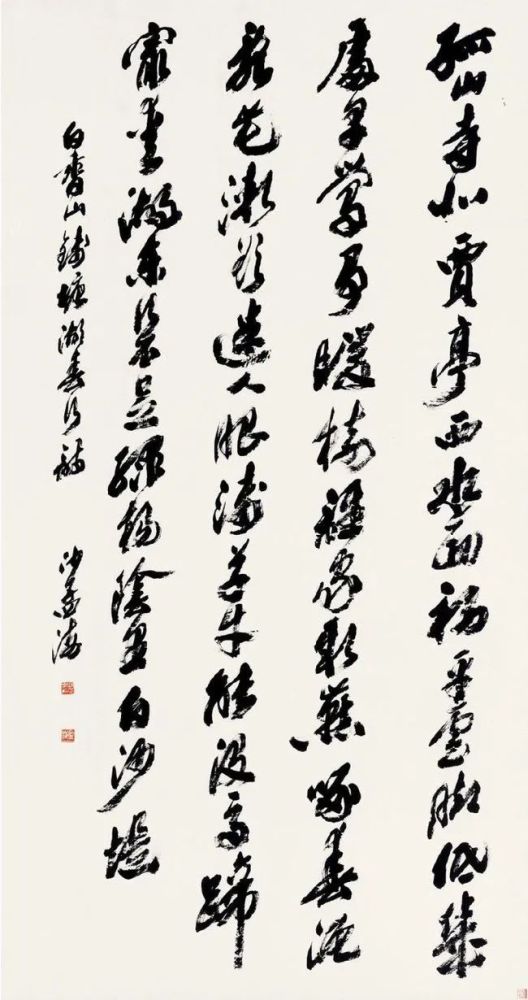 孤山寺北賈亭西水面初平雲腳低幾
處早鶯爭暖樹誰家新燕啄春泥
亂花漸欲迷人眼淺草才能沒馬蹄
最愛湖東行不足綠楊陰里白沙堤
白香山錢塘湖春行詩 沙孟海